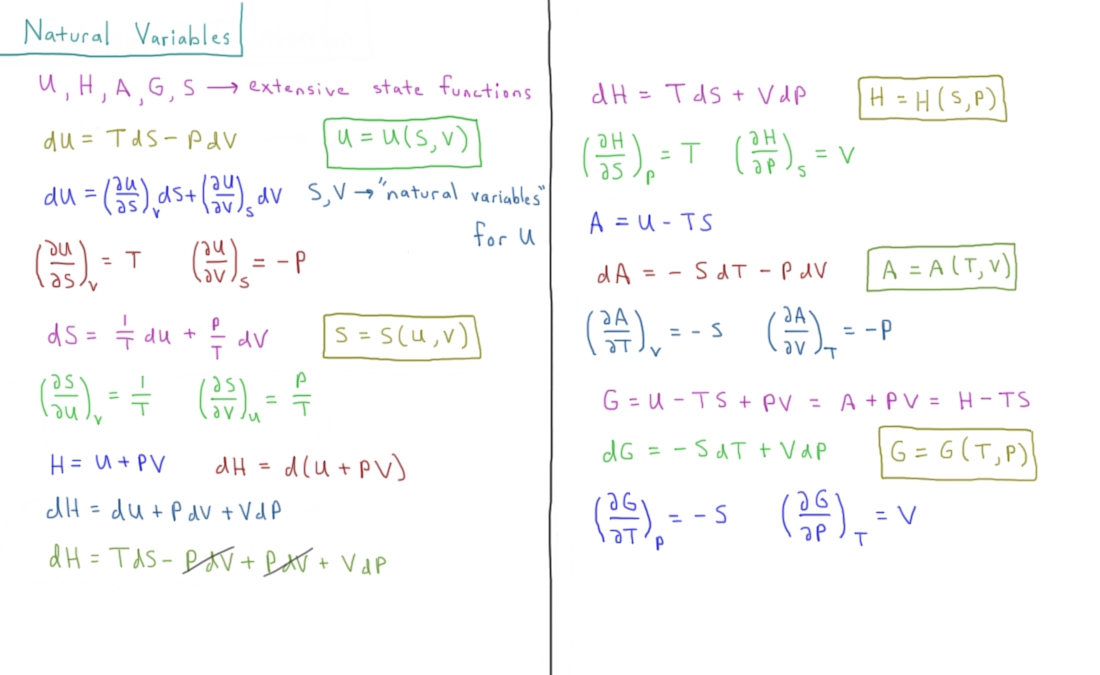 Natural Variables
U, H, A, G, S → extensive state functions
dU = TdS - PdV    U = U(S,V)
dU = (∂U/∂S)_V dS + (∂U/∂V)_S dV    S,V → "natural variables"
for U
(∂U/∂S)_V = T    (∂U/∂V)_S = -P
dS = 1/T dU + P/T dV    S = S(U,V)
(∂S/∂U)_V = 1/T    (∂S/∂V)_U = P/T
H = U + PV    dH = d(U + PV)
dH = dU + PdV + VdP
dH = TdS - PdV + PdV + VdP
dH = TdS + VdP    H = H(S,P)
(∂H/∂S)_P = T    (∂H/∂P)_S = V
A = U - TS
dA = -SdT - PdV    A = A(T,V)
(∂A/∂T)_V = -S    (∂A/∂V)_T = -P
G = U - TS + PV = A + PV = H - TS
dG = -SdT + VdP    G = G(T,P)
(∂G/∂T)_P = -S    (∂G/∂P)_T = V